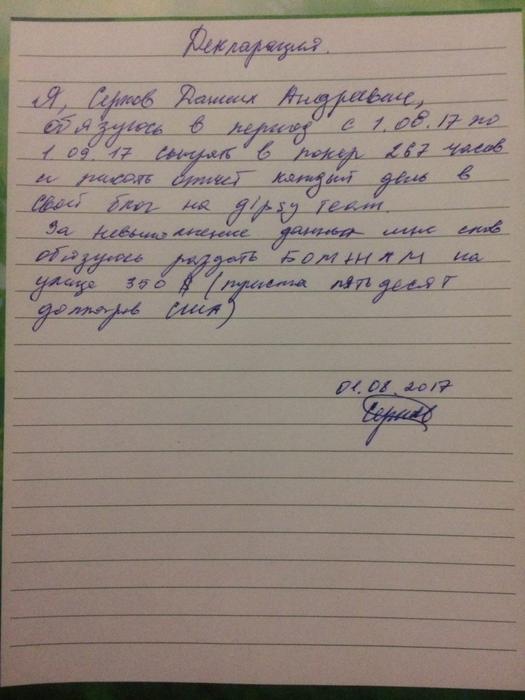 Декларация.
Я, Серков Даниил Андреевич,
обязуюсь в период с 1.08.17 по
1.09.17 сыграть в покер 267 часов
и писать отчет каждый день в
свой блог на gipsy team.
За невыполнение данных мною слов
обязуюсь раздать БОМЖАМ на
улице 350 $ (триста пятьдесят
долларов США)
01.08.2017